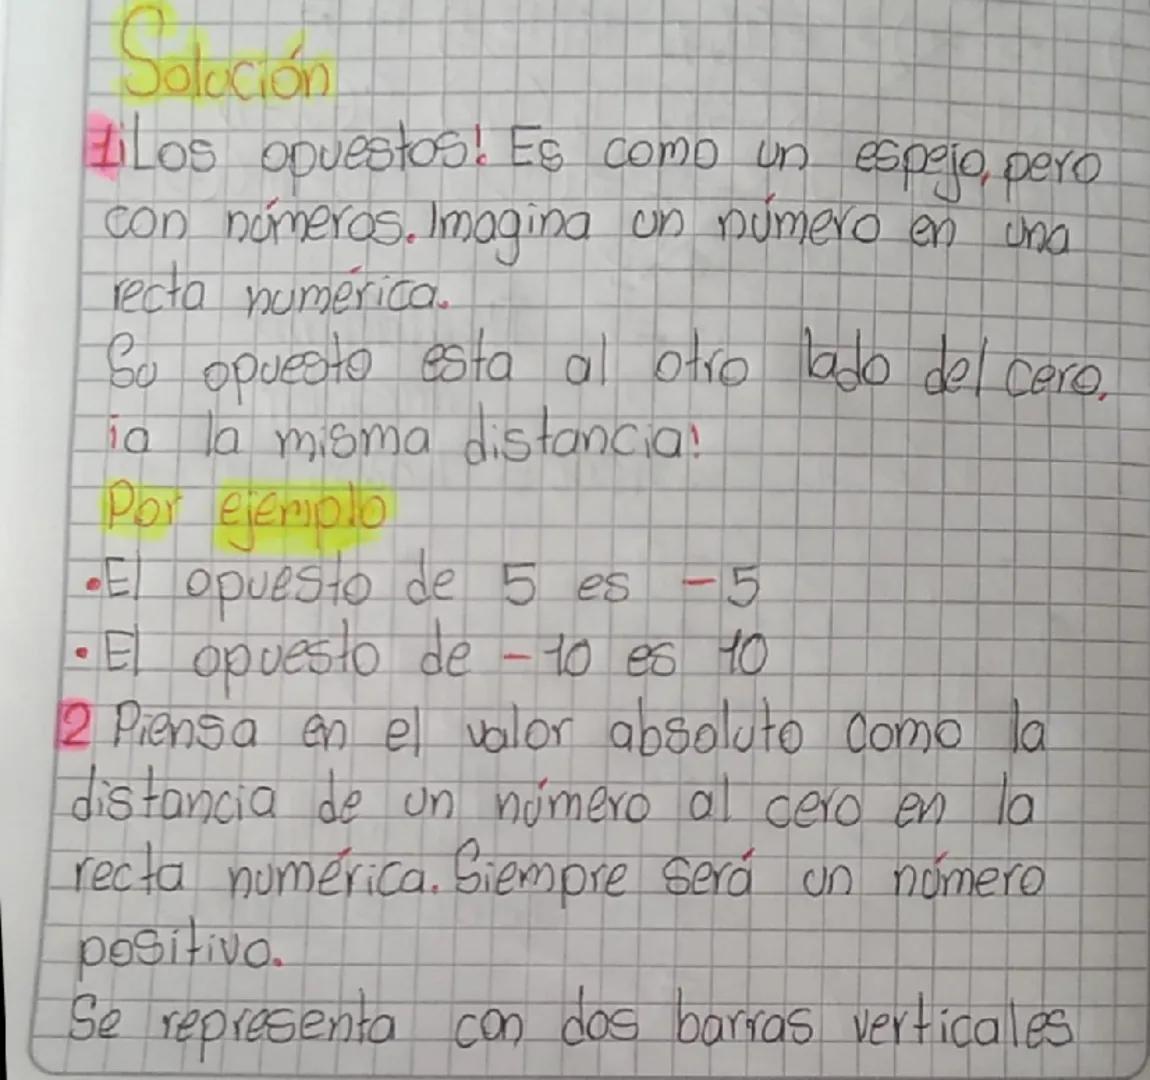 Solución
1 ¡Los opuestos! Es como un espejo, pero
con números. Imagina un número en una
recta numérica.
Su opuesto esta al otro lado del cero.
¡a la misma distancia!
Por ejemplo
• El opuesto de 5 es -5
• El opuesto de -10 es 10
2 Piensa en el valor absoluto como la
distancia de un número al cero en la
recta numérica. Siempre será un número
positivo.
Se representa con dos barras verticales